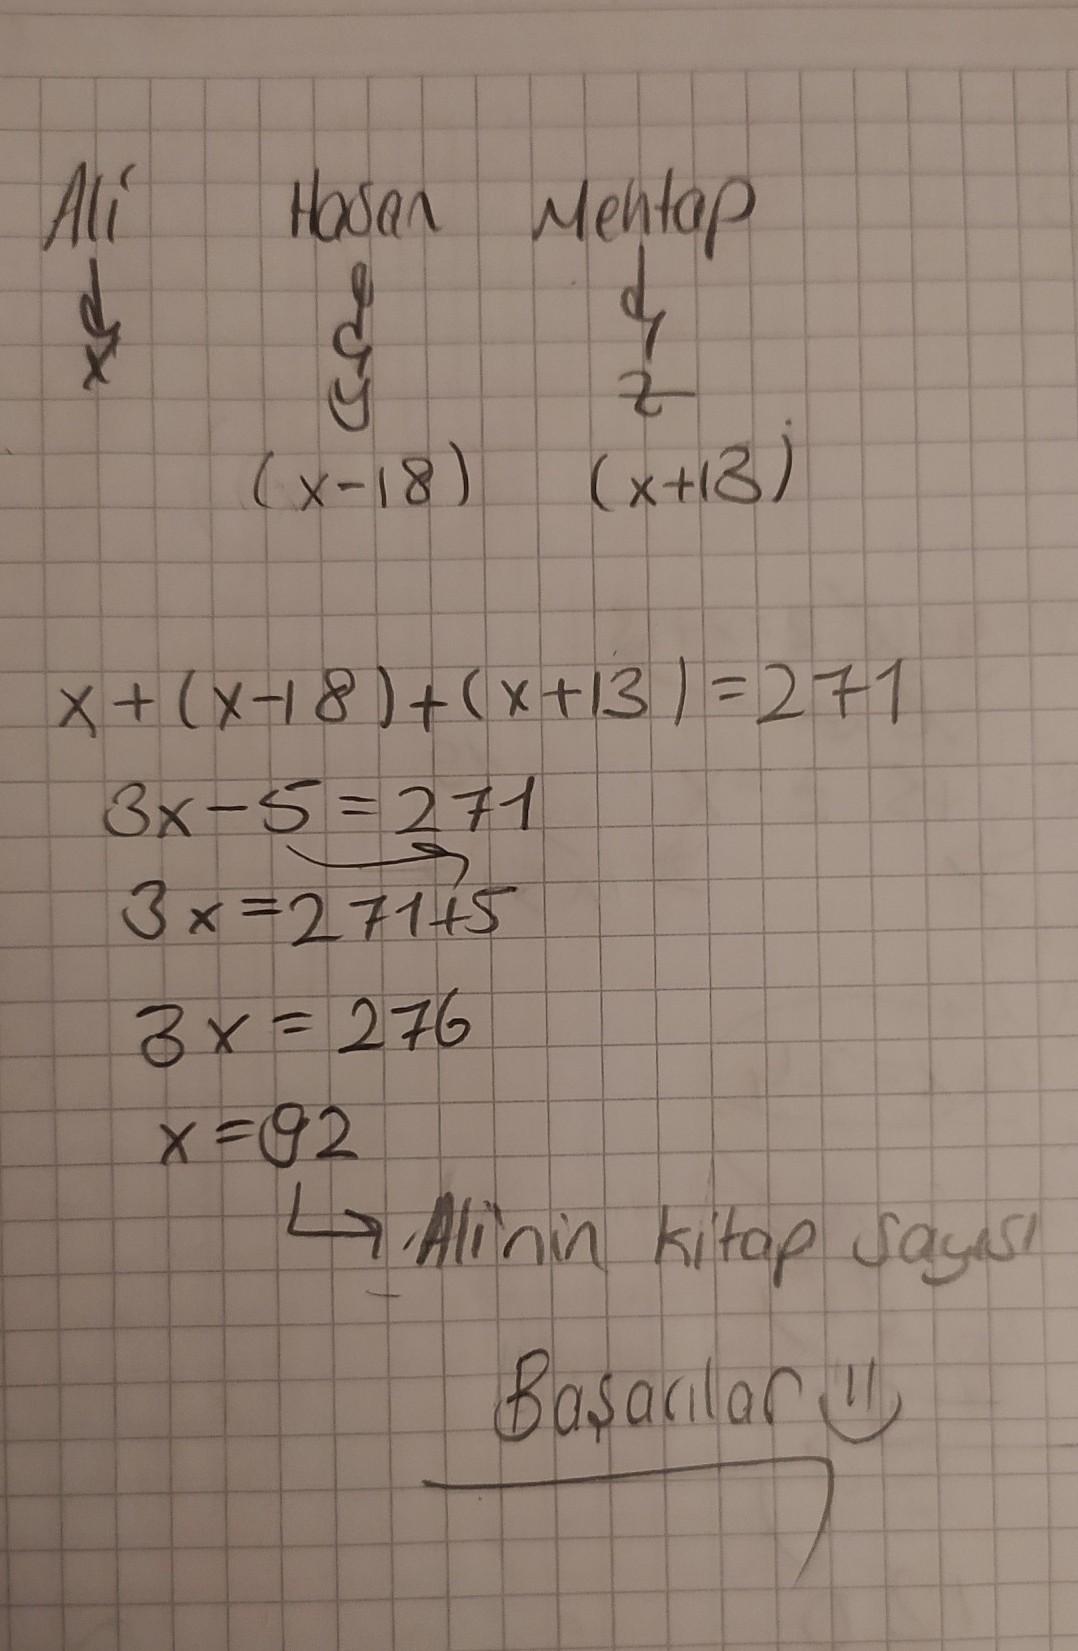 Ali Hasan Mehtap
x y z
(x-18) (x+13)
x+(x-18)+(x+13)=271
3x-5=271
3x=271+5
3x=276
x=92
Ali'nin kitap sayısı
Başarılar